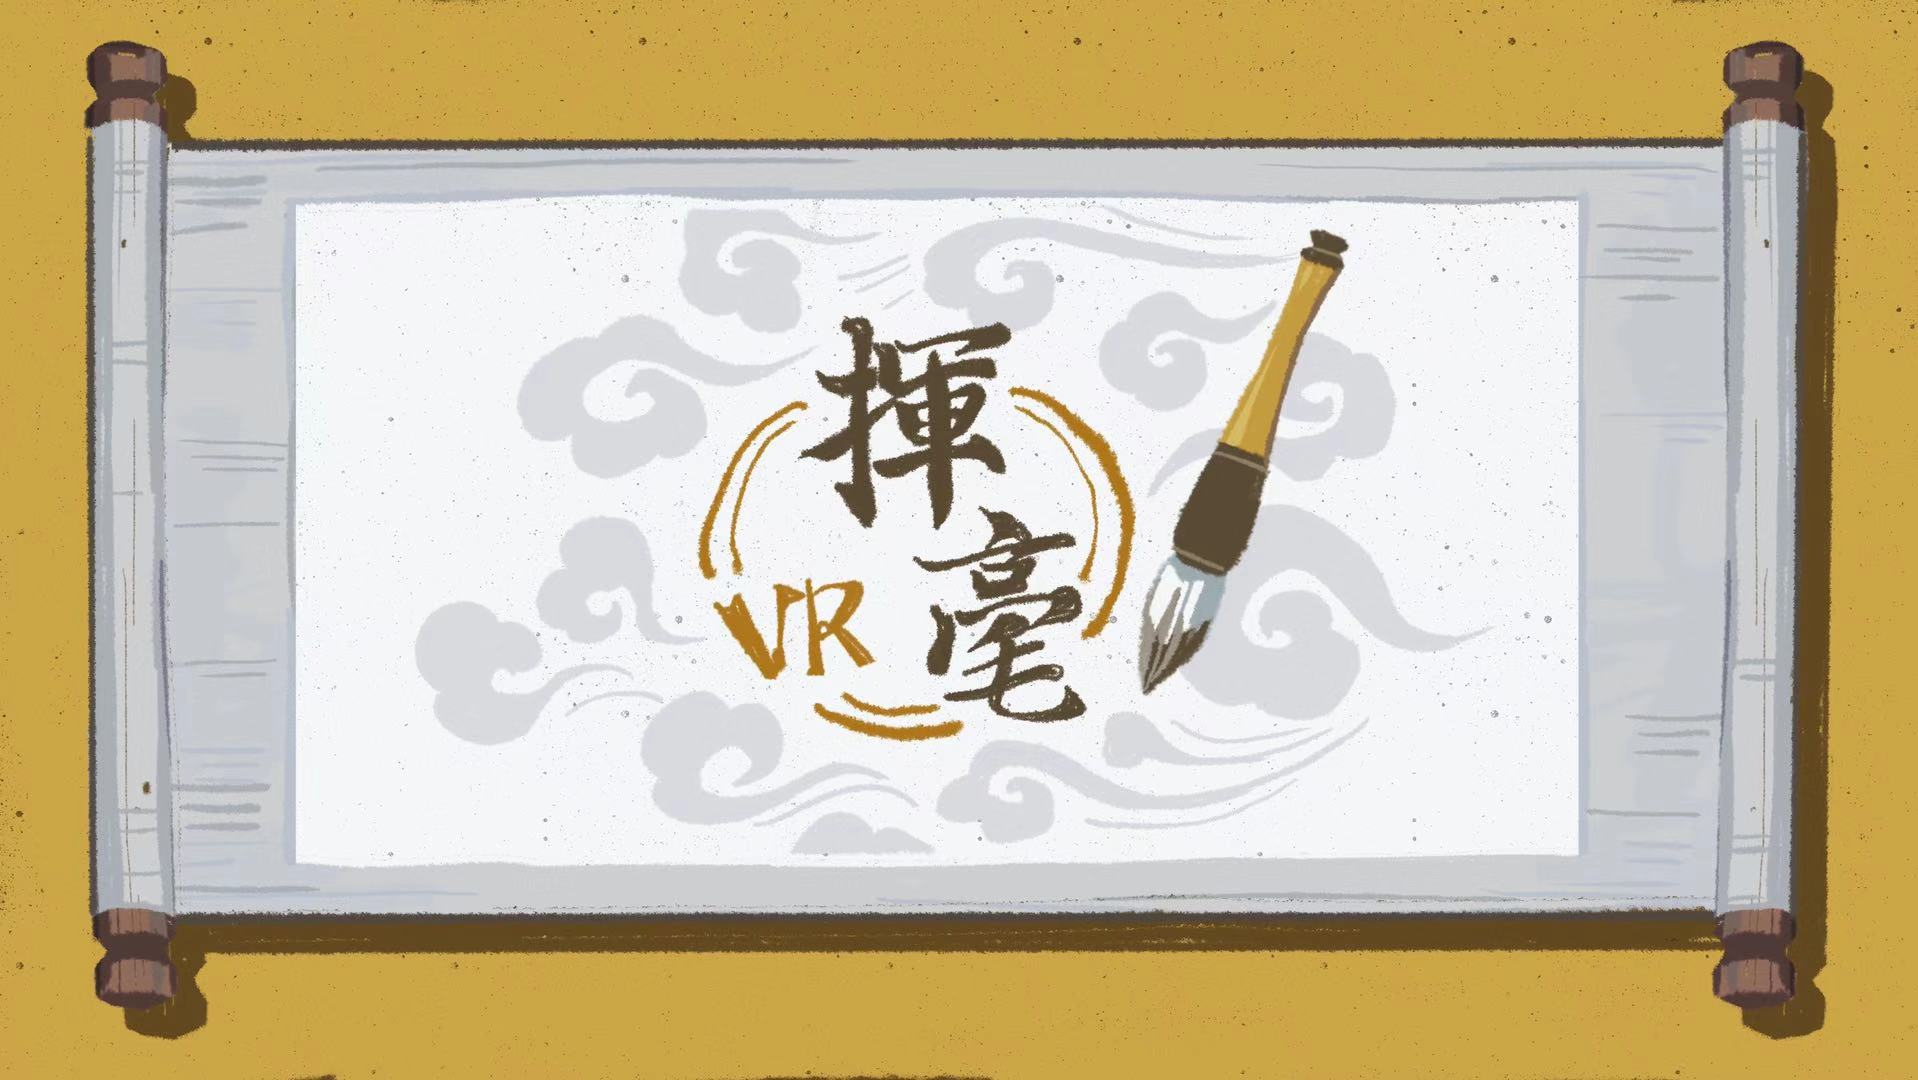 揮
毫
VR